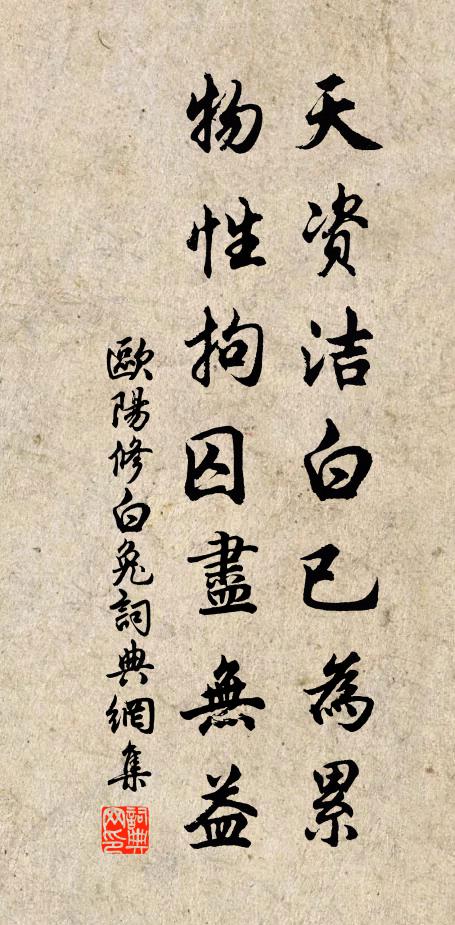 天資洁白已為累
物性拘囚盡無益
歐陽修白兔詞典網集
詞典网印